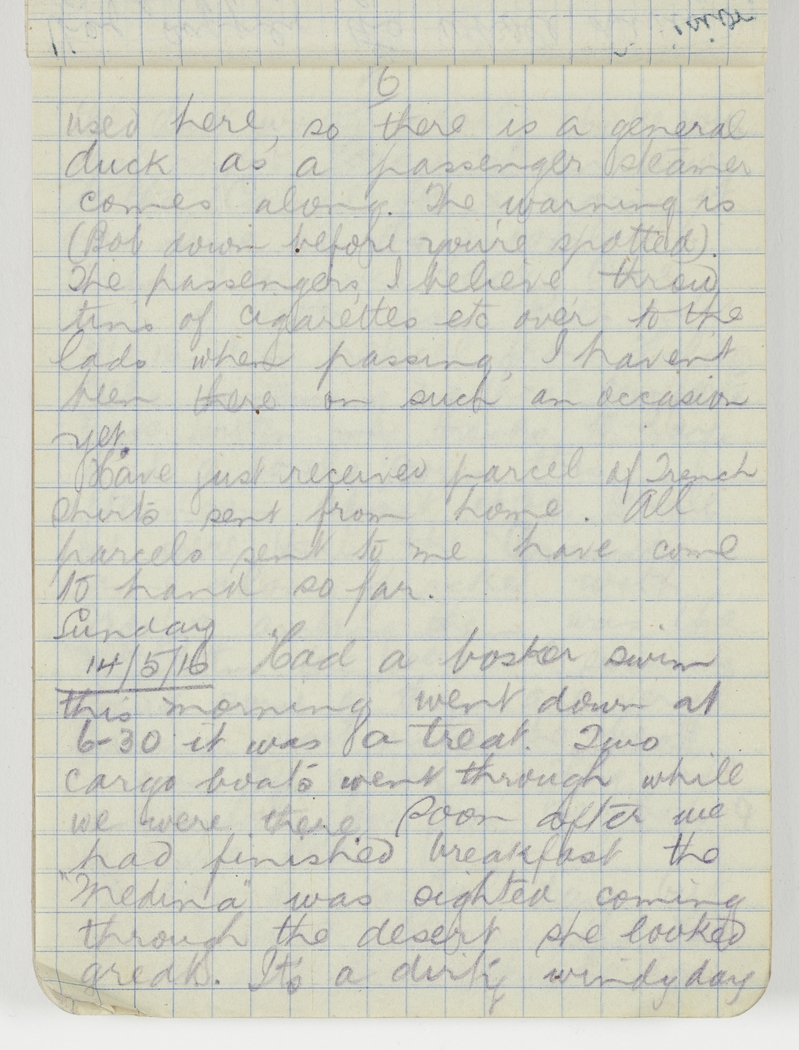 6
used here, so there is a general
duck as a passenger steamer
comes along. The warning is
(Bob down before you're spotted).
The passengers I believe throw
tins of cigarettes etc over to the
lads when passing, I haven't
been there on such an occasion
yet.
Have just received parcel of French
shirts sent from home. All
parcels sent to me have come
to hand so far.
Sunday
14/5/16 Had a bosker swim
this morning went down at
6-30 it was a treat. Two
cargo boats went through while
we were there. Soon after we
had finished breakfast the
"Medina" was sighted coming
through the desert she looked
great. It's a dirty windy day